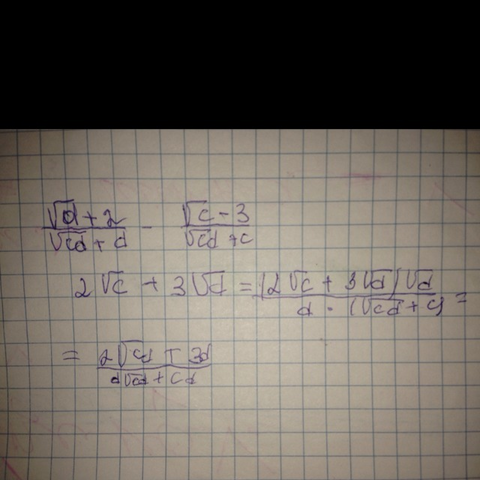 (√d + 2)/(√cd + d) - (√c - 3)/(√cd + c)
2√c + 3√d = (2√c + 3√d)√d/(d · (√cd + c)) =
= (2√cd + 3d)/(d√cd + cd)